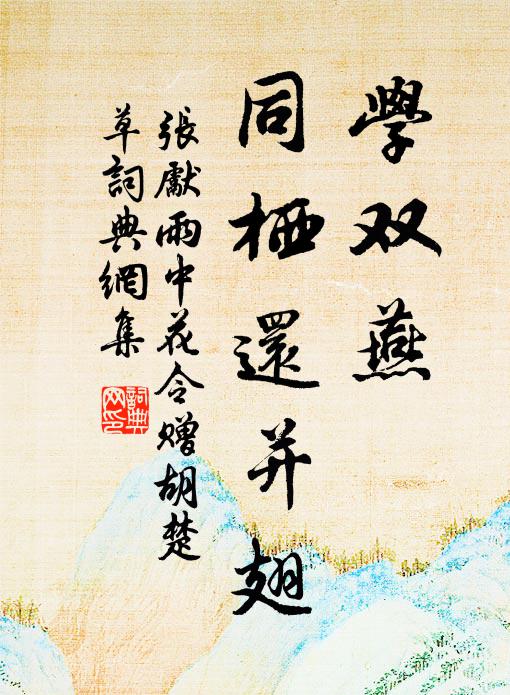 學双燕
同栖還并翅
張獻雨中花令贈胡楚
草詞典網集
詞典
网印